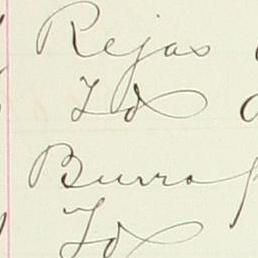 Rejas
Id
Burra
Id